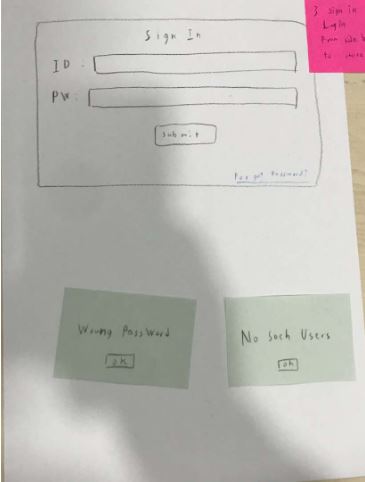 Sign In
3 sign in
Login
From
to
ID :
PW :
Submit
Forgot Password?
Wrong Password
OK
No Such Users
OK